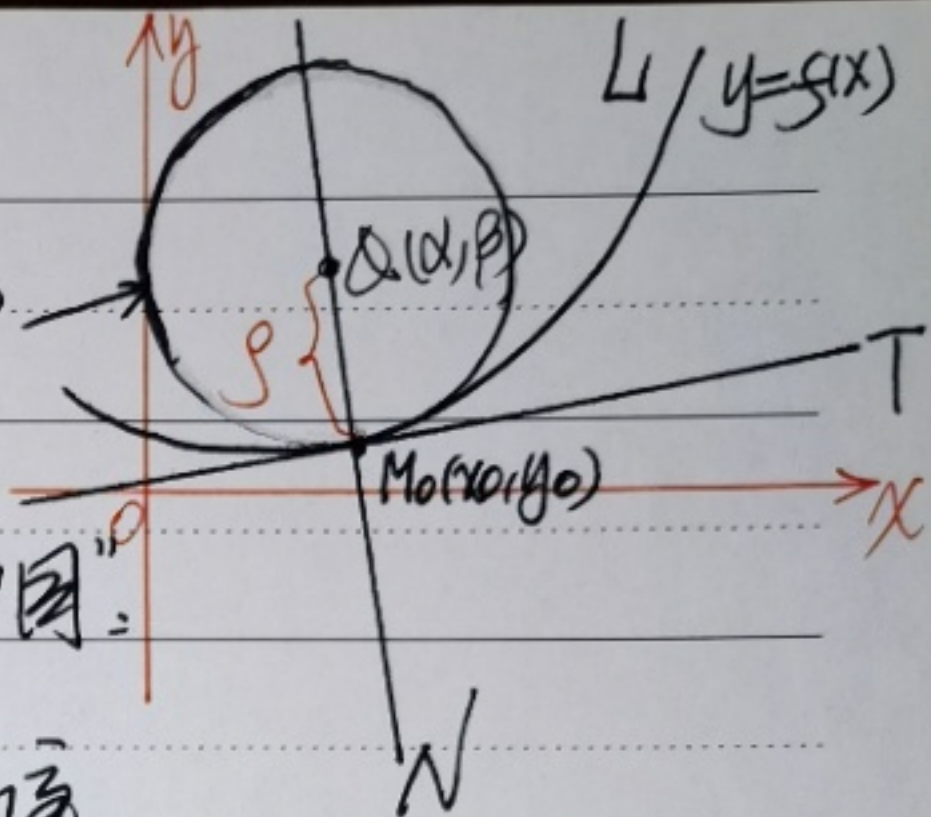 y
L y=f(x)
Q(α,β)
ρ
T
M₀(x₀,y₀)
x
O
图"
N